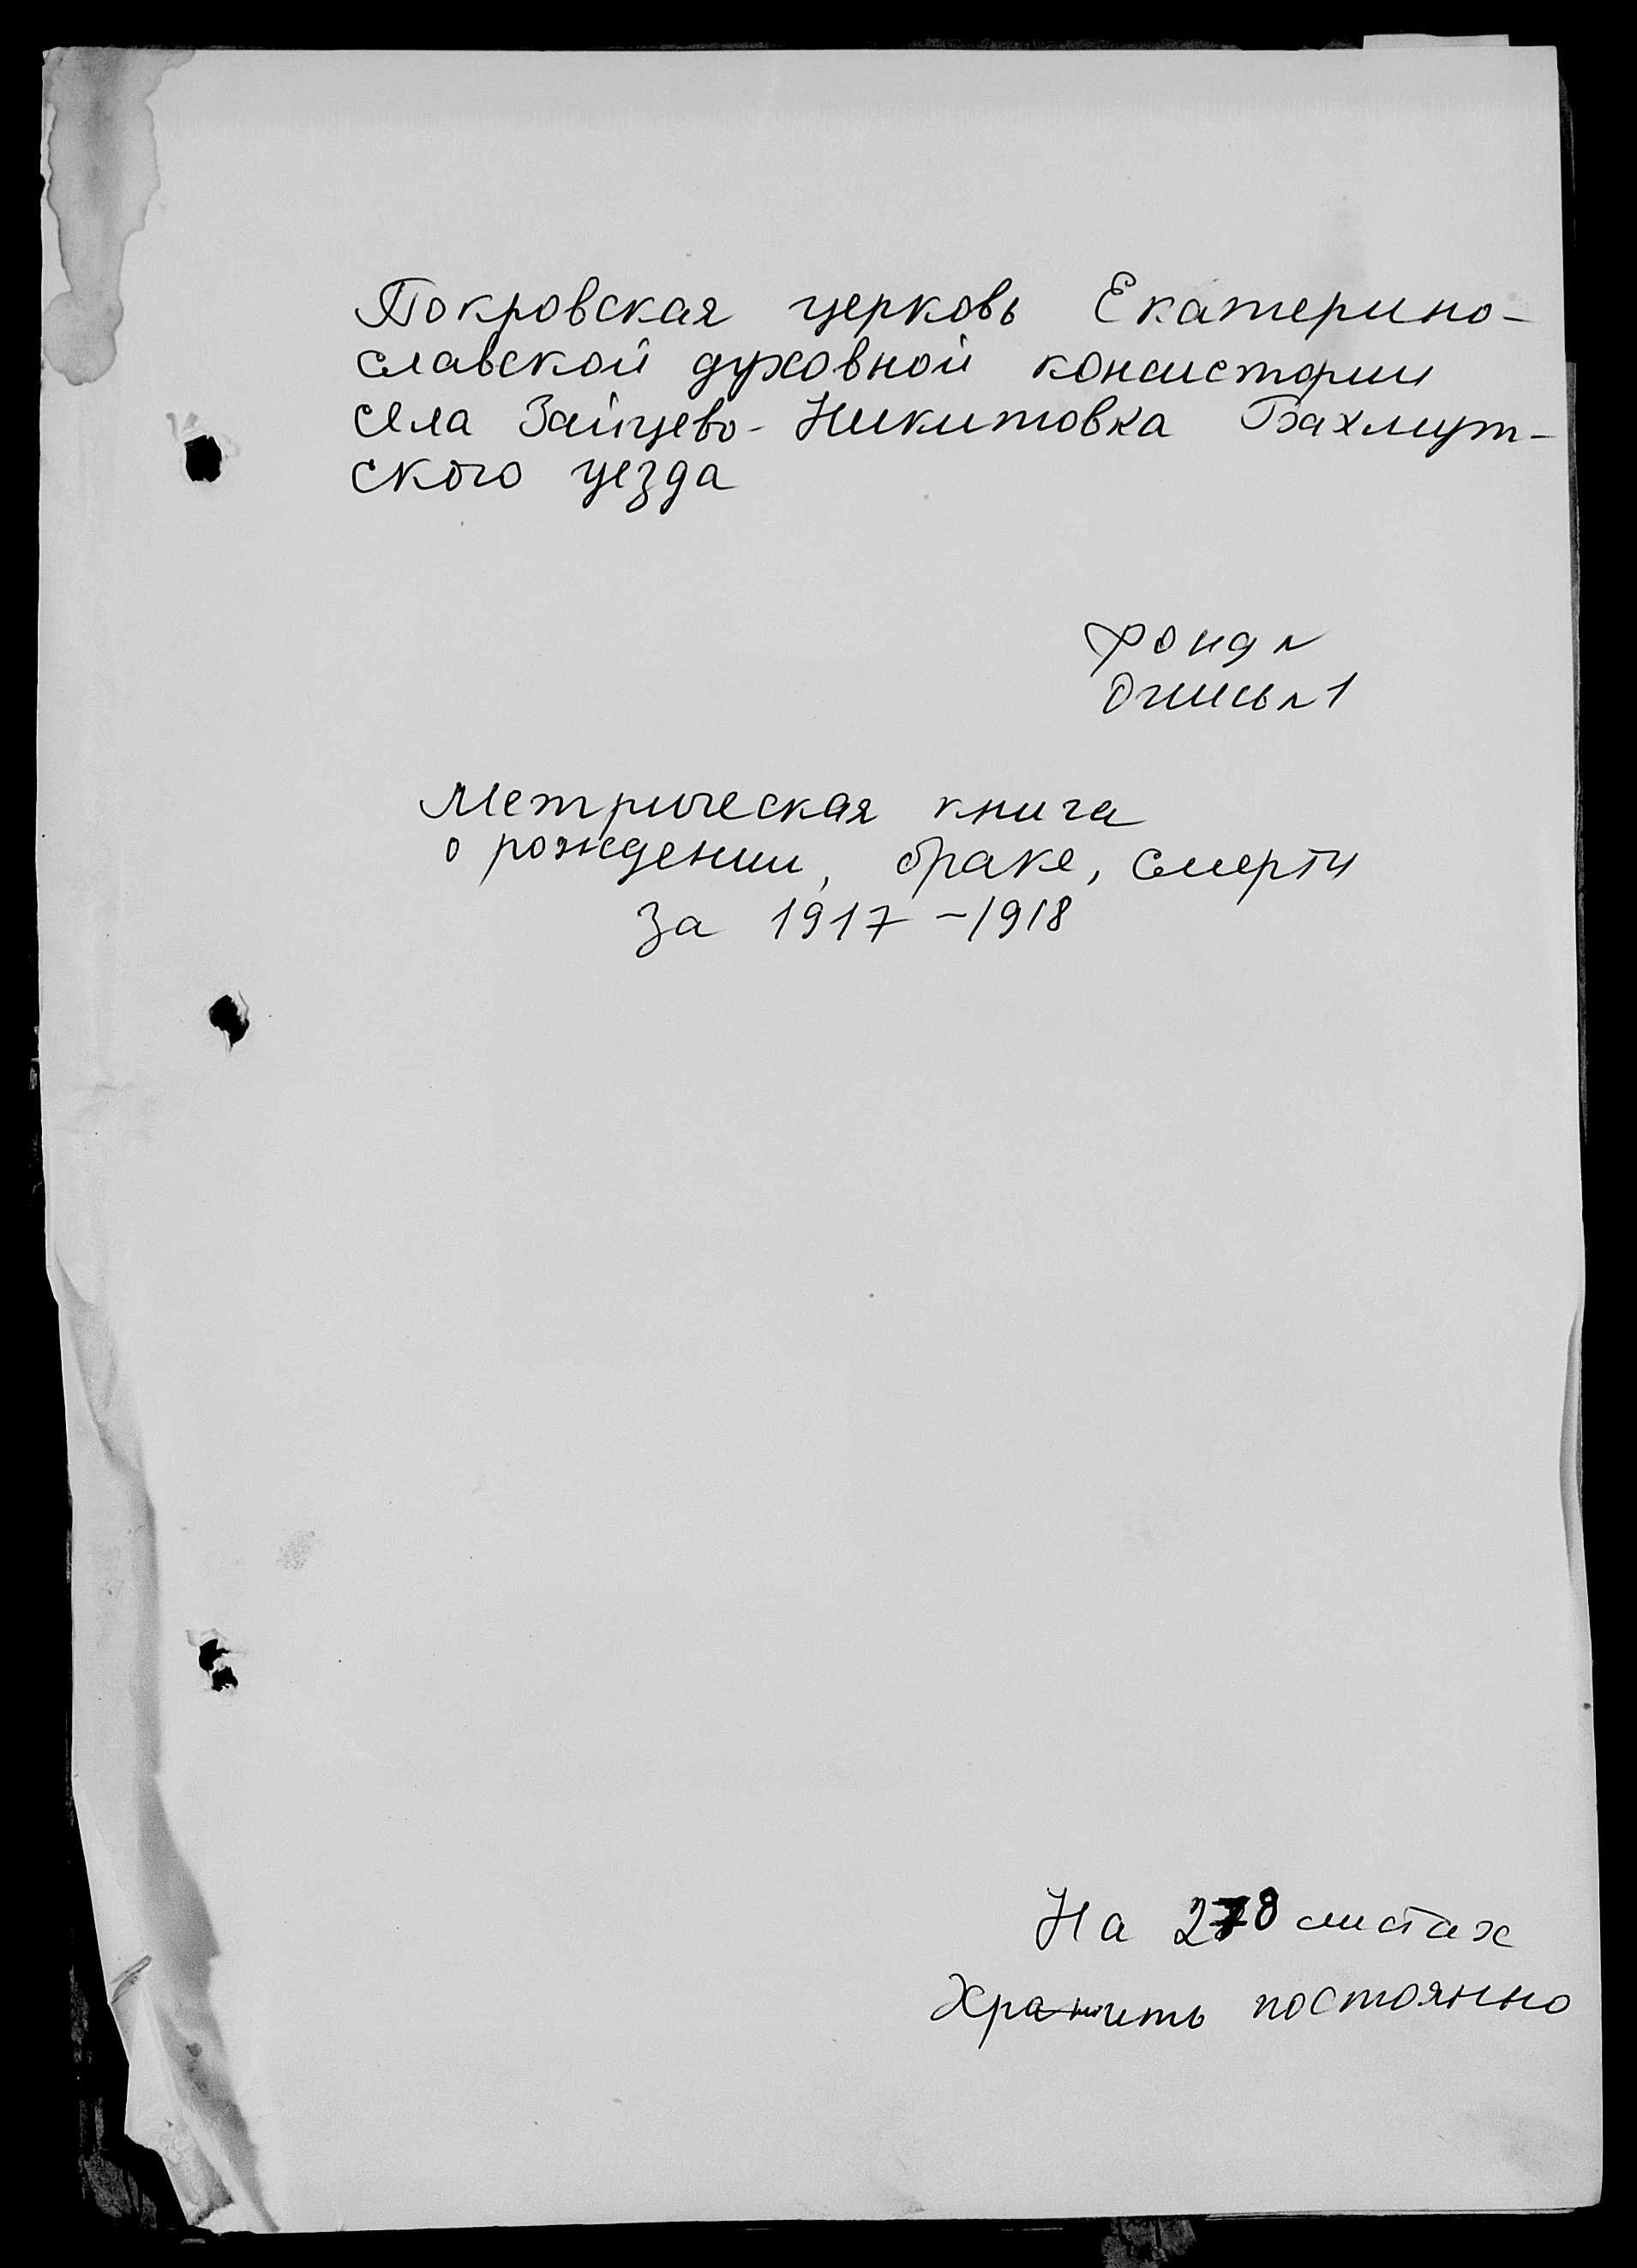 Покровская церковь Екатерино-
славской духовной консистории
села Зайцево-Никитовка Бахмут-
ского уезда
Фонд №
Опись №1
Метрическая книга
о рождении, браке, смерти
за 1917-1918
На 278 листах
Хранить постоянно